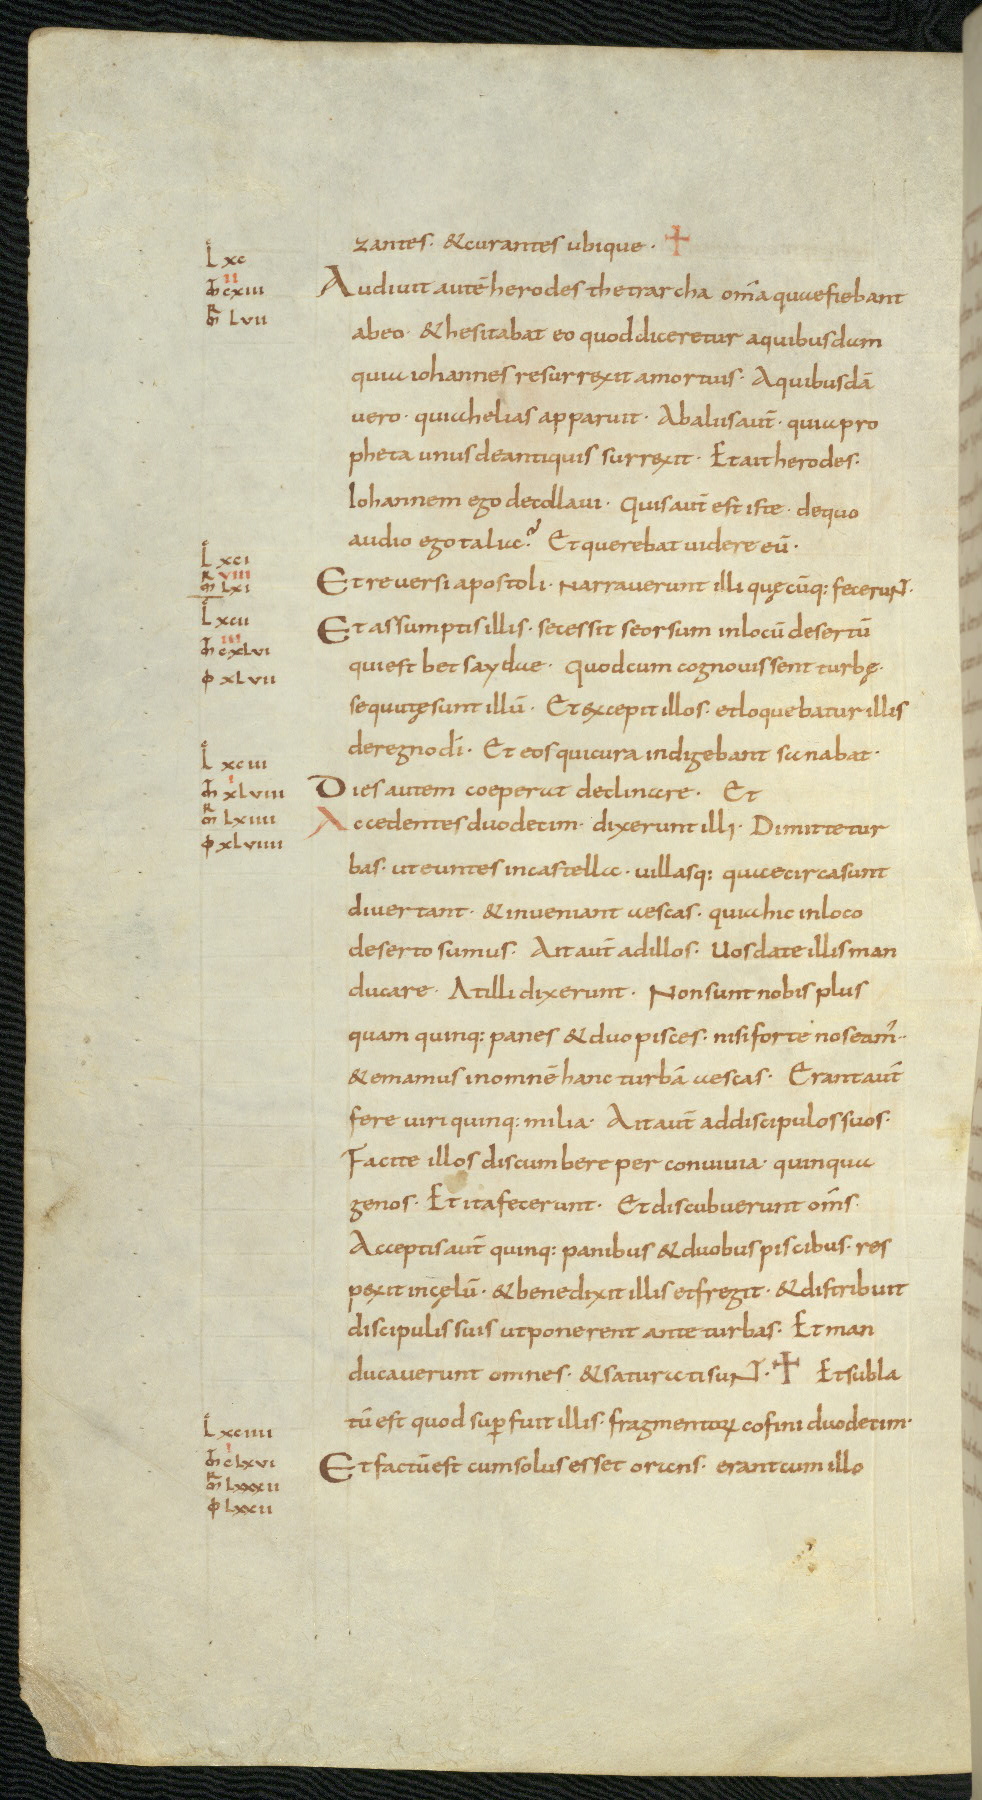 zantes · & curantes ubique · ✝
L xc
Audiuit autē herodes thetrarcha om̄a quae fiebant
m̄ cxiii
II
m̄R Lvii
abeo · & hesitabat eo quod diceretur a quibusdam
quia iohannes resurrexit a mortuis · A quibusdā
uero · quia helias apparuit · Ab aliis aut̄ · quia pro
pheta unus de antiquis surrexit · Et ait herodes ·
Iohannem ego decollaui · Quis aut̄ est iste · de quo
audio ego talia? Et querebat uidere eū ·
L xci
Et reuersi apostoli · narrauerunt illi quęcūq: fecerunt ·
m̄R Lxi
VIII
L xcii
Et assumptis illis · secessit seorsum in locū desertū
m̄ cxLvi
III
qui est betsaydae · Quod cum cognouissent turbę ·
φ xLvii
sequutę sunt illū · Et excepit illos · et loquebatur illis
de regno dī · Et eos qui cura indigebant sanabat ·
L xciii
Dies autem coeperat declinare · Et
m̄ xLviii
I
Accedentes duodecim · dixerunt illi · Dimitte tur
m̄R Lxiiii
φ xLviiii
bas · ut euntes in castella · uillasq: quae circa sunt
diuertant · & inueniant aescas · quia hic in loco
deserto sumus · Ait aut̄ ad illos · Uos date illis man
ducare · At illi dixerunt · Non sunt nobis plus
quam quinq: panes & duo pisces · nisi forte nos eam᷑ ·
& emamus in omnē hanc turbā aescas · Erant aut̄
fere uiri quinq: milia · Ait aut̄ ad discipulos suos ·
Facite illos discumbere per conuiuia · quinqua
genos · Et ita fecerunt · Et discubuerunt om̄s ·
Acceptis aut̄ quinq: panibus & duobus piscibus · res
pexit in cęlū · & benedixit illis et fregit · & distribuit
discipulis suis ut ponerent ante turbas · Et man
ducauerunt omnes · & saturati sunt · ✝ Et subla
tū est quod suꝑfuit illis · fragmentoꝝ cofini duodecim ·
L xciiii
Et factū est cum solus esset orans · erant cum illo
m̄ cLxvi
I
m̄R Lxxxii
φ Lxxii